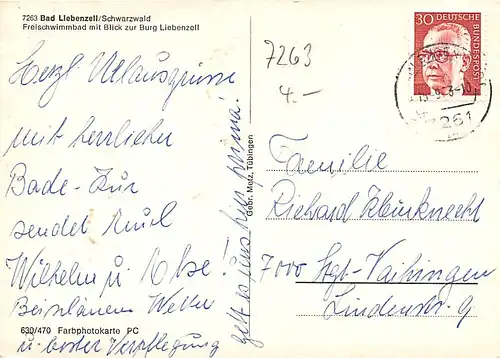 7263 Bad Liebenzell/Schwarzwald
Freischwimmbad mit Blick zur Burg Liebenzell
Herzl. Urlaubsgrüsse
mit herrlicher
Bade-Kur
sendet Euch
Wilhelm u. Ilse!
Bei schönem Wetter
u. bester Verpflegung
geht es uns hier prima!
630/470 Farbphotokarte PC
Gebr. Metz, Tübingen
7263
4.-
30 DEUTSCHE BUNDESPOST
7261
Familie
Richard Kleinknecht
7000 Stgt-Vaihingen
Lindenstr. 9